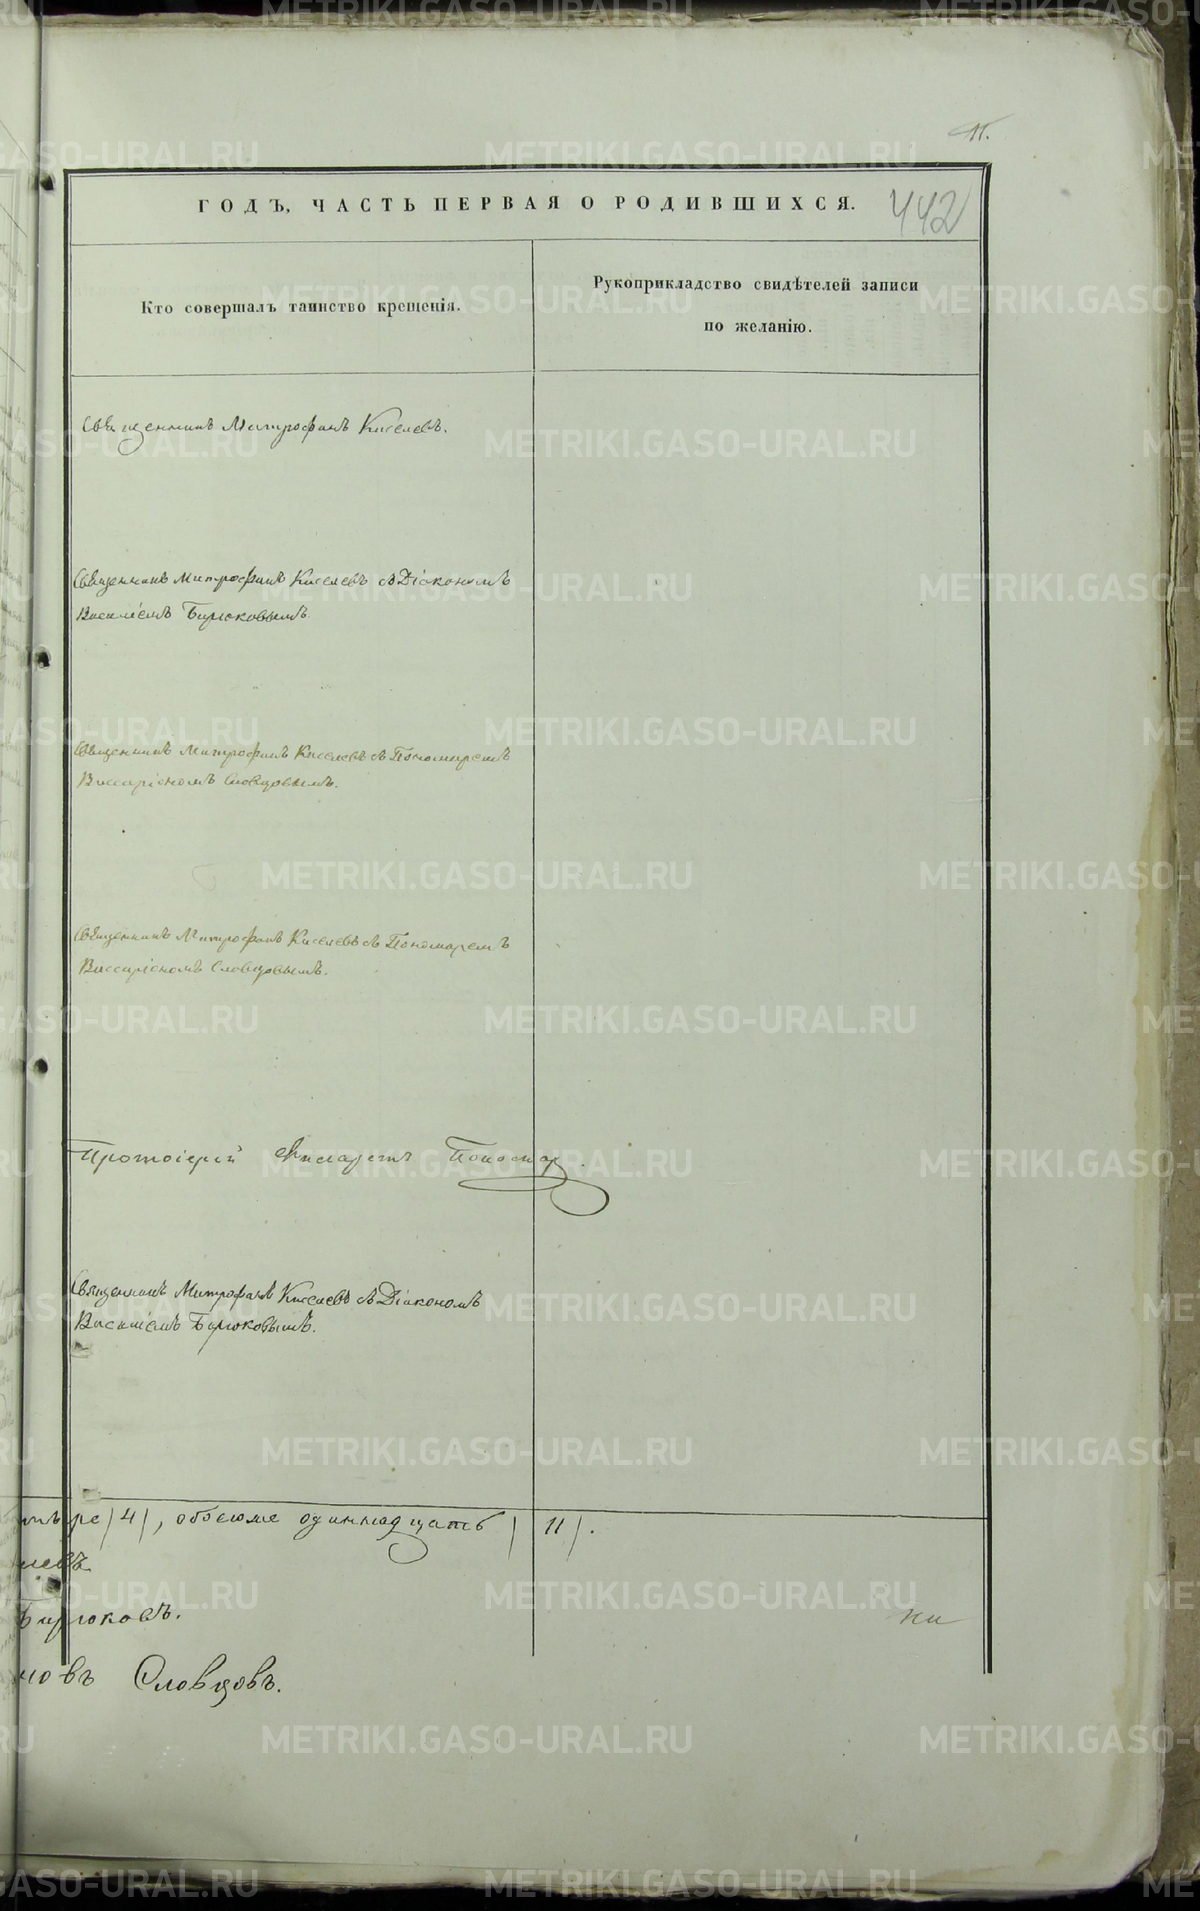 11.
ГОДЪ, ЧАСТЬ ПЕРВАЯ О РОДИВШИХСЯ. 442
Кто совершалъ таинство крещенія.
Рукоприкладство свидѣтелей записи
по желанію.
Священникъ Митрофанъ Киселевъ.
Священникъ Митрофанъ Киселевъ съ Діакономъ
Василіемъ Бирюковымъ.
Священникъ Митрофанъ Киселевъ съ Пономаремъ
Виссаріономъ Словцовымъ.
Священникъ Митрофанъ Киселевъ съ Пономаремъ
Виссаріономъ Словцовымъ.
Протоіерей
Священникъ Митрофанъ Киселевъ съ Діакономъ
Василіемъ Бирюковымъ.
тыре /4/, обоего одиннадцать /11/.
левъ
Бирюковъ.
новъ Словцовъ.
METRIKI.GASO-URAL.RU